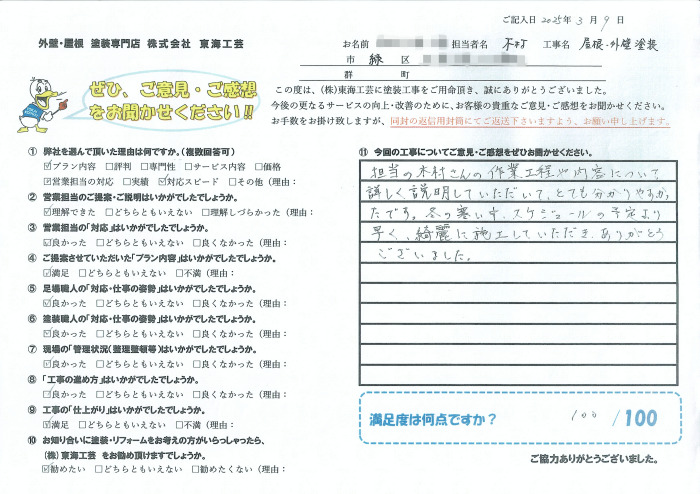 ご記入日 2025年 3月 9日
外壁・屋根 塗装専門店 株式会社 東海工芸
お名前 担当者名 木村 工事名 屋根・外壁塗装
市 緑 区
郡 町
ぜひ、ご意見・ご感想
をお聞かせください!!
この度は、(株)東海工芸に塗装工事をご用命頂き、誠にありがとうございました。
今後の更なるサービスの向上・改善のために、お客様の貴重なご意見・ご感想をお聞かせください。
お手数をお掛け致しますが、同封の返信用封筒にてご返送下さいますよう、お願い申し上げます。
① 弊社を選んで頂いた理由は何ですか。(複数回答可)
☑プラン内容 □評判 □専門性 □サービス内容 □価格
☑営業担当の対応 □実績 ☑対応スピード □その他(理由:
② 営業担当のご提案・ご説明はいかがでしたでしょうか。
☑理解できた □どちらともいえない □理解しづらかった(理由:
③ 営業担当の「対応」はいかがでしたでしょうか。
☑良かった □どちらともいえない □良くなかった(理由:
④ ご提案させていただいた「プラン内容」はいかがでしたでしょうか。
☑満足 □どちらともいえない □不満(理由:
⑤ 足場職人の「対応・仕事の姿勢」はいかがでしたでしょうか。
☑良かった □どちらともいえない □良くなかった(理由:
⑥ 塗装職人の「対応・仕事の姿勢」はいかがでしたでしょうか。
☑良かった □どちらともいえない □良くなかった(理由:
⑦ 現場の「管理状況(整理整頓等)はいかがでしたでしょうか。
☑良かった □どちらともいえない □良くなかった(理由:
⑧ 「工事の進め方」はいかがでしたでしょうか。
☑良かった □どちらともいえない □良くなかった(理由:
⑨ 工事の「仕上がり」はいかがでしたでしょうか。
☑満足 □どちらともいえない □不満(理由:
⑩ お知り合いに塗装・リフォームをお考えの方がいらっしゃったら、
(株)東海工芸 をお勧め頂けますでしょうか。
☑勧めたい □どちらともいえない □勧めたくない(理由:
⑪ 今回の工事についてご意見・ご感想をぜひお聞かせください。
担当の木村さんの作業工程や内容について
詳しく説明していただいて、とても分かりやすかっ
たです。冬の寒い中、スケジュールの予定より
早く、綺麗に施工していただき、ありがとう
ございました。
満足度は何点ですか? 100/100
ご協力ありがとうございました。